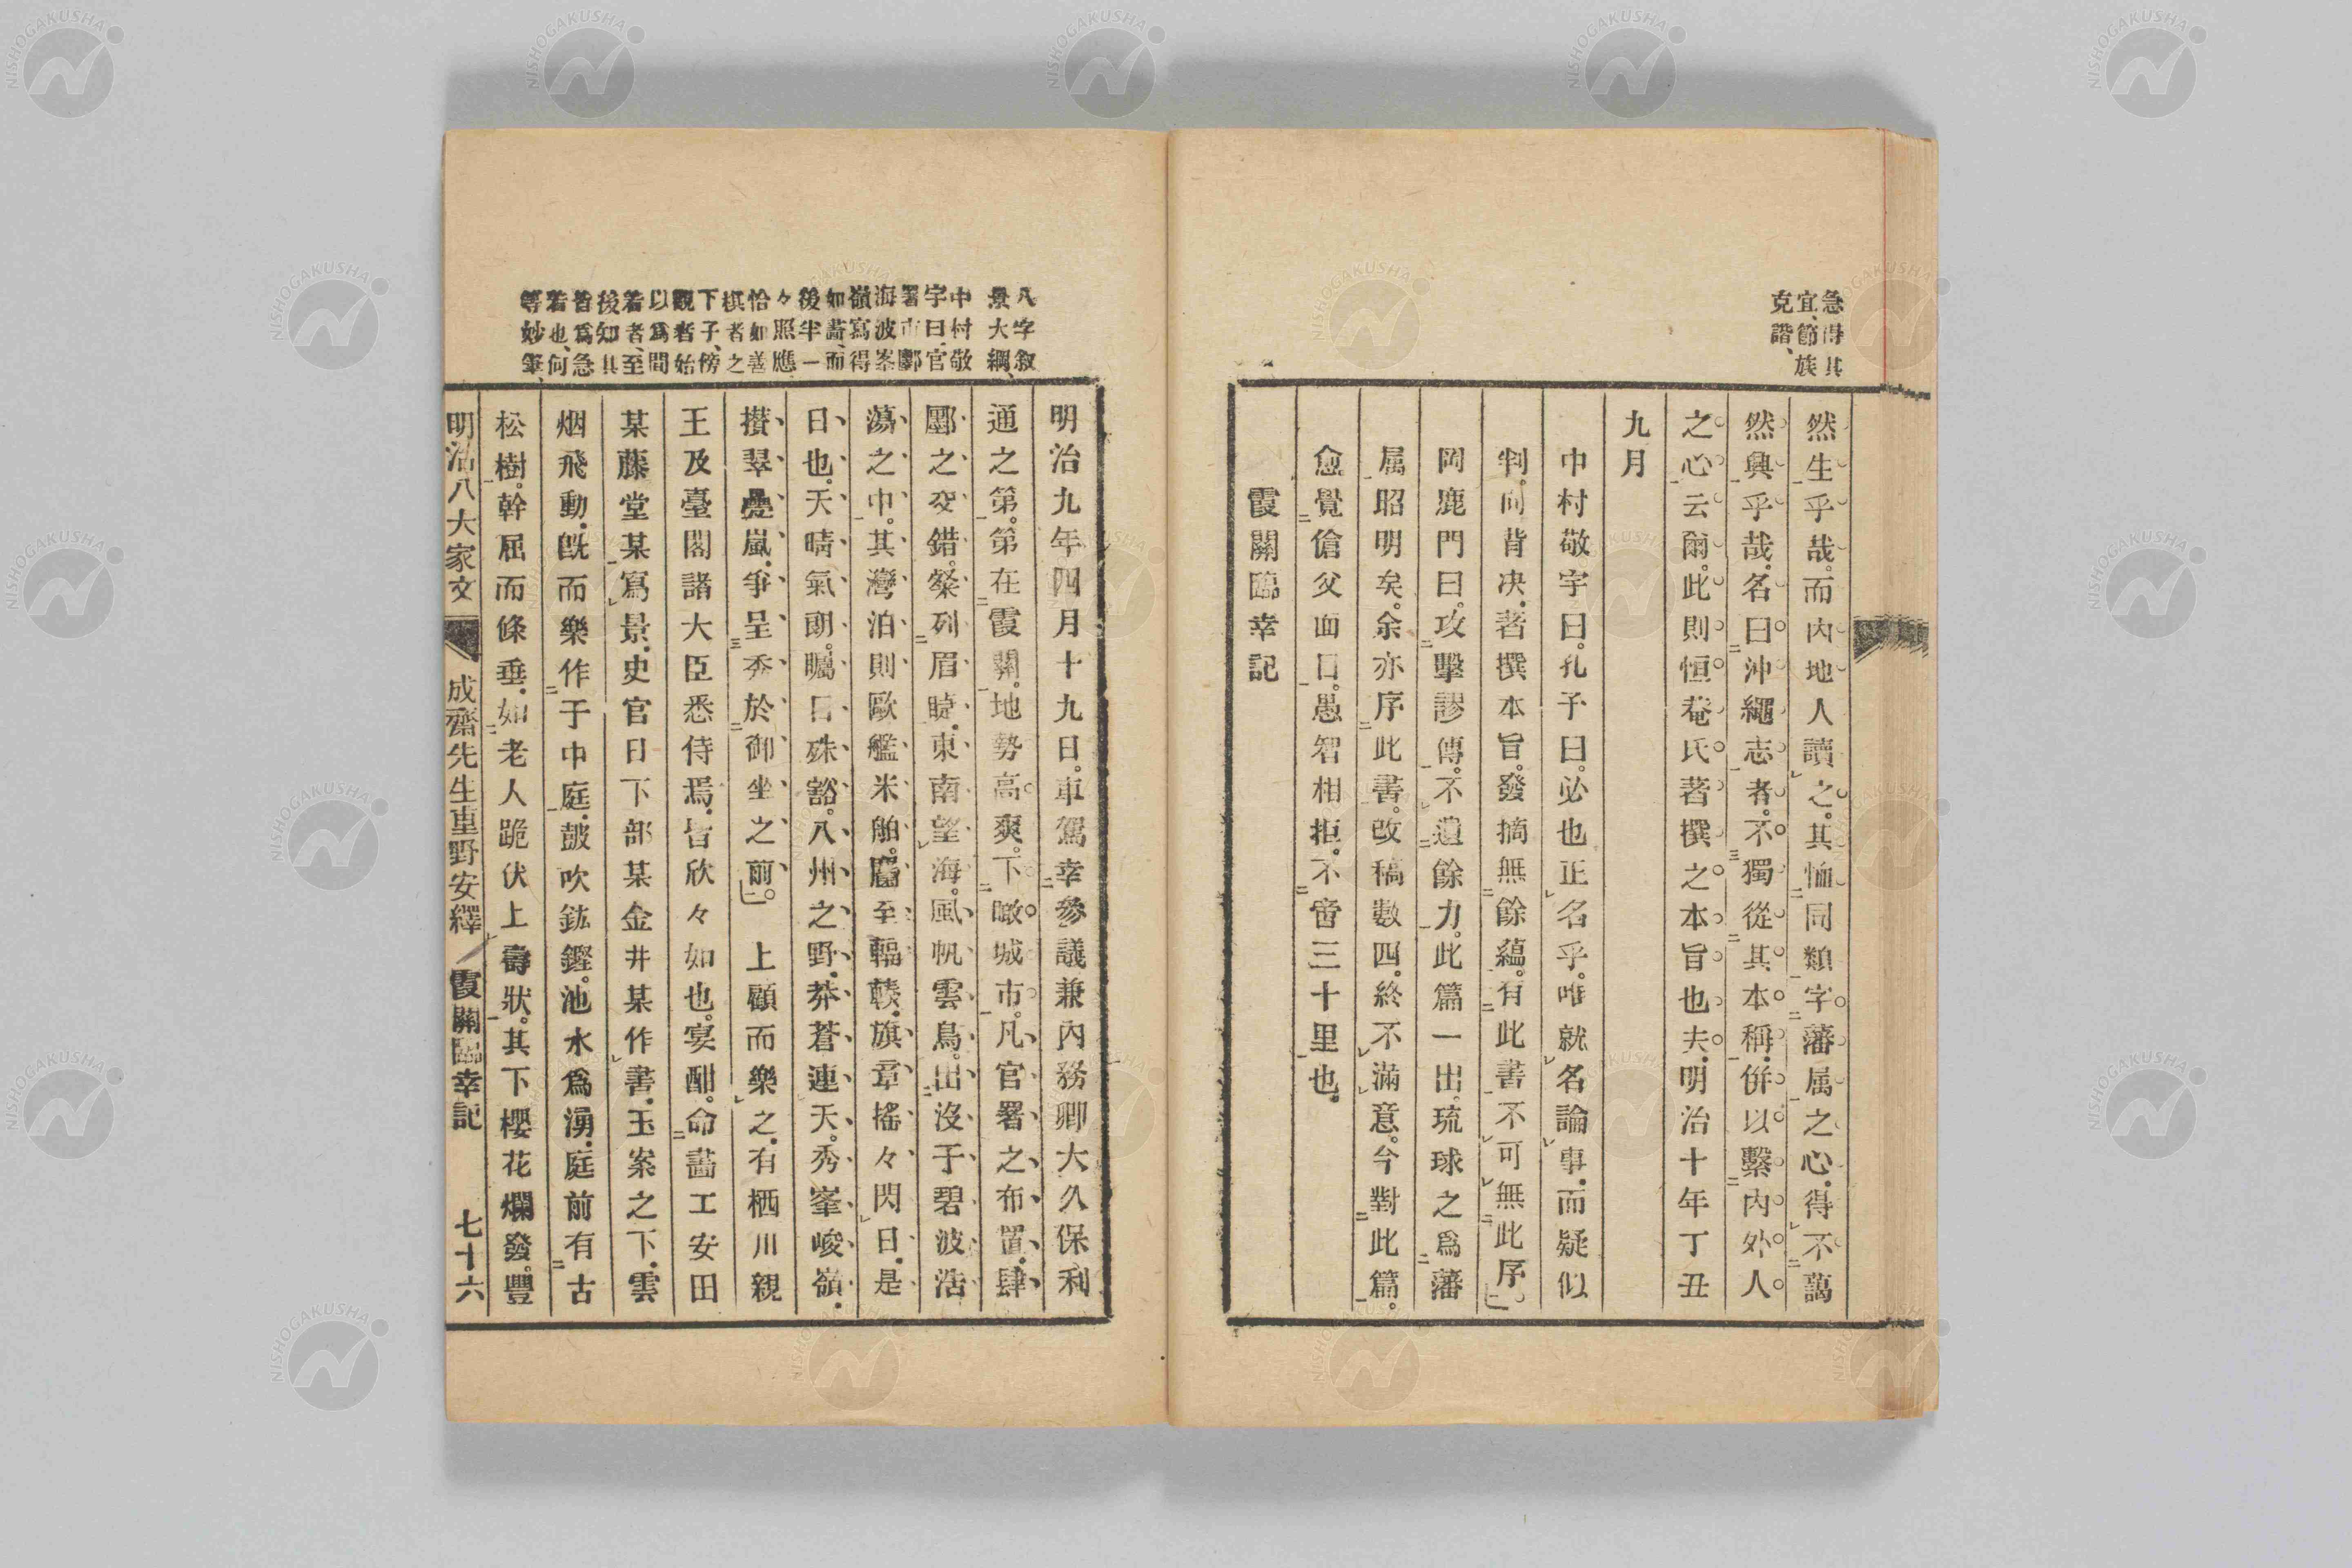 急得其
宜、節族
克諧、
然生乎哉。而內地人讀之。其恤同類字藩属之心。得不藹
然興乎哉。名曰沖繩志者。不獨從其本稱。併以繫內外人
之心云爾。此則恒菴氏著撰之本旨也夫。明治十年丁丑
九月
中村敬宇曰。孔子曰。必也正名乎。唯就名論事。而疑似
判。向背决。著撰本旨。發摘無餘蘊。有此書不可無此序。」
岡鹿門曰。攻擊謬傳。不遺餘力。此篇一出。琉球之爲藩
属昭明矣。余亦序此書。改稿數四。終不滿意。今對此篇。
愈覺傖父面目。愚智相拒。不啻三十里也。
霞關臨幸記
八字叙
景大綱、
中村敬
宇曰、官
署市鄽
海波峯
嶺寫得
如畵、而
後半一
々照應、
恰如善
棋者之
下子、傍
觀者始
以爲間
着者、至
後知其
皆爲急
着也、何
等妙筆、
明治九年四月十九日。車駕幸參議兼內務卿大久保利
通之第。第在霞關。地勢高爽。下瞰城市。凡官署之布置。肆
鄽之交錯。粲列眉睫。東南望海。風帆雲鳥。出沒于碧波浩
蕩之中。其灣泊則歐艦米舶。麕至輻輳。旗章搖々閃日。是
日也。天晴氣朗。矚目殊豁。八州之野。莽蒼連天。秀峯峻嶺。
攅翠疊嵐。爭呈秀於御坐之前。」上顧而樂之。有栖川親
王及臺閣諸大臣悉侍焉。皆欣々如也。宴酣。命畵工安田
某藤堂某寫景。史官日下部某金井某作書。玉案之下。雲
烟飛動。旣而樂作于中庭。鼓吹鈜鏗。池水爲湧。庭前有古
松樹。幹屈而條垂。如老人跪伏上壽狀。其下櫻花爛發。豐
明治八大家文 成齋先生重野安繹 霞關臨幸記 七十六